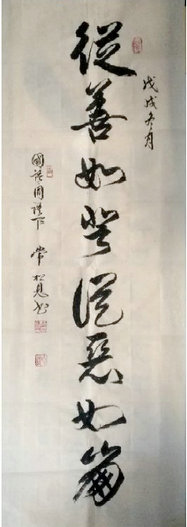 戊戌冬月
從善如登從惡如崩
國語周語下 常松書